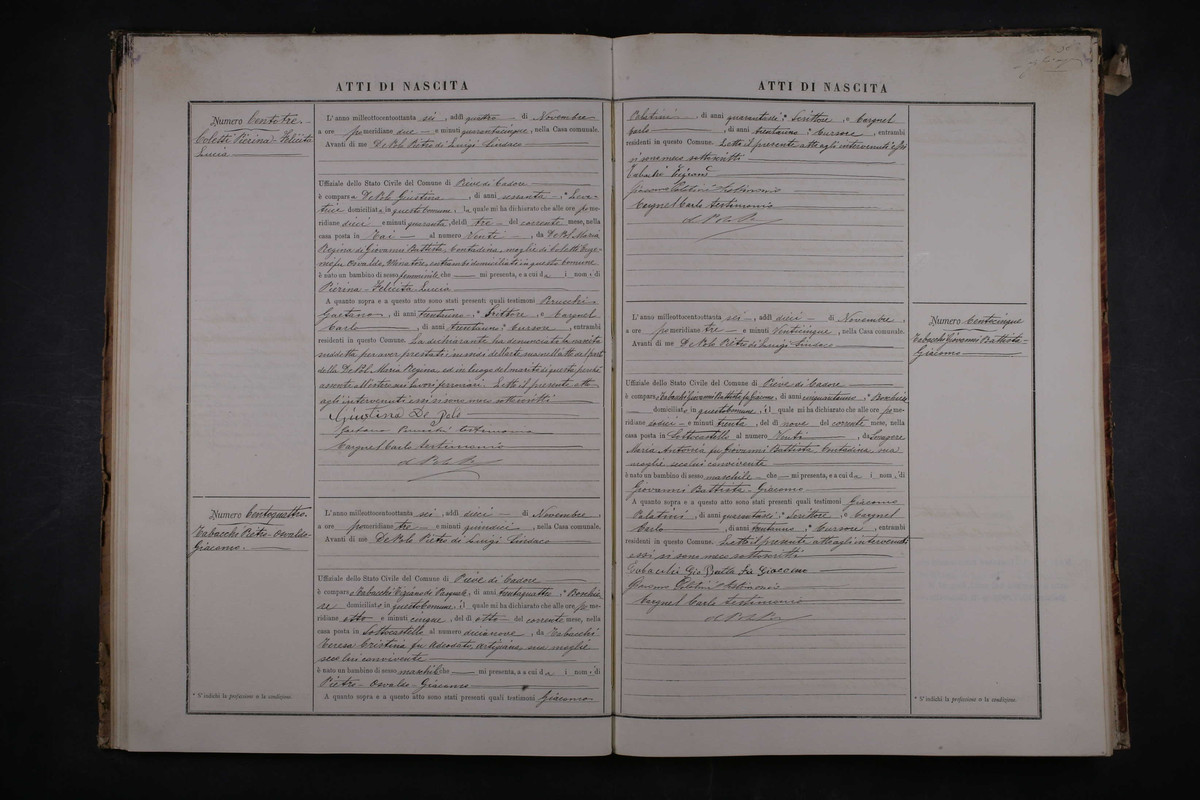 ATTI DI NASCITA
Numero Centotre
Coletti Pierina-Felicita
Lucia
L'anno milleottocentottanta sei, addì quattro di Novembre
a ore pomeridiane due e minuti quarantacinque, nella Casa comunale.
Avanti di me De Polo Pietro di Luigi Sindaco
Uffiziale dello Stato Civile del Comune di Pieve di Cadore
è comparsa De Polo Giustina, di anni sessanta, Leva-
trice domiciliata in questo Comune, la quale mi ha dichiarato che alle ore pome-
ridiane dieci e minuti quaranta, del dì tre del corrente mese, nella
casa posta in Vai al numero Venti, da De Pol Maria
Regina di Giovanni Battista, Contadina, moglie di Coletti
fu Osvaldo, entrambi domiciliati in questo Comune
è nato un bambino di sesso femminile che mi presenta, e a cui dà i nomi di
Pierina-Felicita-Lucia
A quanto sopra e a questo atto sono stati presenti quali testimoni
Gaetano, di anni trentuno, Scrittore, e Cargnel
Carlo, di anni trentuno, Cursore, entrambi
residenti in questo Comune. La dichiarante ha denunciato la nascita
suddetta per aver prestati in modo della sua nell'atto del parto
della De Pol Maria Regina ed in luogo del marito di questa perchè
assente all'estero nei lavori ferroviari. Letto il presente atto
agli intervenuti essi si sono meco sottoscritti
Giustina De Polo
Gaetano testimonio
Cargnel Carlo testimonio
Numero Centoquattro
Tabacchi Pietro-Osvaldo-
Giacomo.
L'anno milleottocentottanta sei, addì dieci di Novembre
a ore pomeridiane tre e minuti quindici, nella Casa comunale.
Avanti di me De Polo Pietro di Luigi Sindaco
Uffiziale dello Stato Civile del Comune di Pieve di Cadore
è comparso Tabacchi Tiziano di Pasquale, di anni trentaquattro, Boschie-
re domiciliato in questo Comune, il quale mi ha dichiarato che alle ore pome-
ridiane otto e minuti cinque, del dì otto del corrente mese, nella
casa posta in Sottocastello al numero diecinove, da Tabacchi
Teresa Cristina fu Adeodato, artigiana, sua moglie
seco lui convivente
è nato un bambino di sesso maschile che mi presenta, e a cui dà i nomi di
Pietro-Osvaldo-Giacomo
A quanto sopra e a questo atto sono stati presenti quali testimoni Giacomo
* S'indichi la professione o la condizione.
ATTI DI NASCITA
Palatini, di anni quarantasei, Scrittore, e Cargnel
Carlo, di anni trentuno, Cursore, entrambi
residenti in questo Comune. Letto il presente atto agli intervenuti essi
si sono meco sottoscritti
Tabacchi Tiziano
Giacomo Palatini testimonio
Cargnel Carlo testimonio
Numero Centocinque
Tabacchi Giovanni Battista-
Giacomo
L'anno milleottocentottanta sei, addì dieci di Novembre
a ore pomeridiane tre e minuti Venticinque, nella Casa comunale.
Avanti di me De Polo Pietro di Luigi Sindaco
Uffiziale dello Stato Civile del Comune di Pieve di Cadore
è comparso Tabacchi Giovanni Battista fu Giacomo, di anni cinquantuno, Boschiere
domiciliato in questo Comune, il quale mi ha dichiarato che alle ore pome-
ridiane e minuti trenta, del dì nove del corrente mese, nella
casa posta in Sottocastello al numero Venti, da
Maria Antonia fu Giovanni Battista, Contadina, sua
moglie seco lui convivente
è nato un bambino di sesso maschile che mi presenta, e a cui dà i nomi di
Giovanni Battista-Giacomo
A quanto sopra e a questo atto sono stati presenti quali testimoni Giacomo
Palatini, di anni quarantasei, Scrittore, e Cargnel
Carlo, di anni trentuno, Cursore, entrambi
residenti in questo Comune. Letto il presente atto agli intervenuti
essi si sono meco sottoscritti
Tabacchi Gio Batta fu Giacomo
Giacomo Palatini testimonio
Cargnel Carlo testimonio
* S'indichi la professione o la condizione.